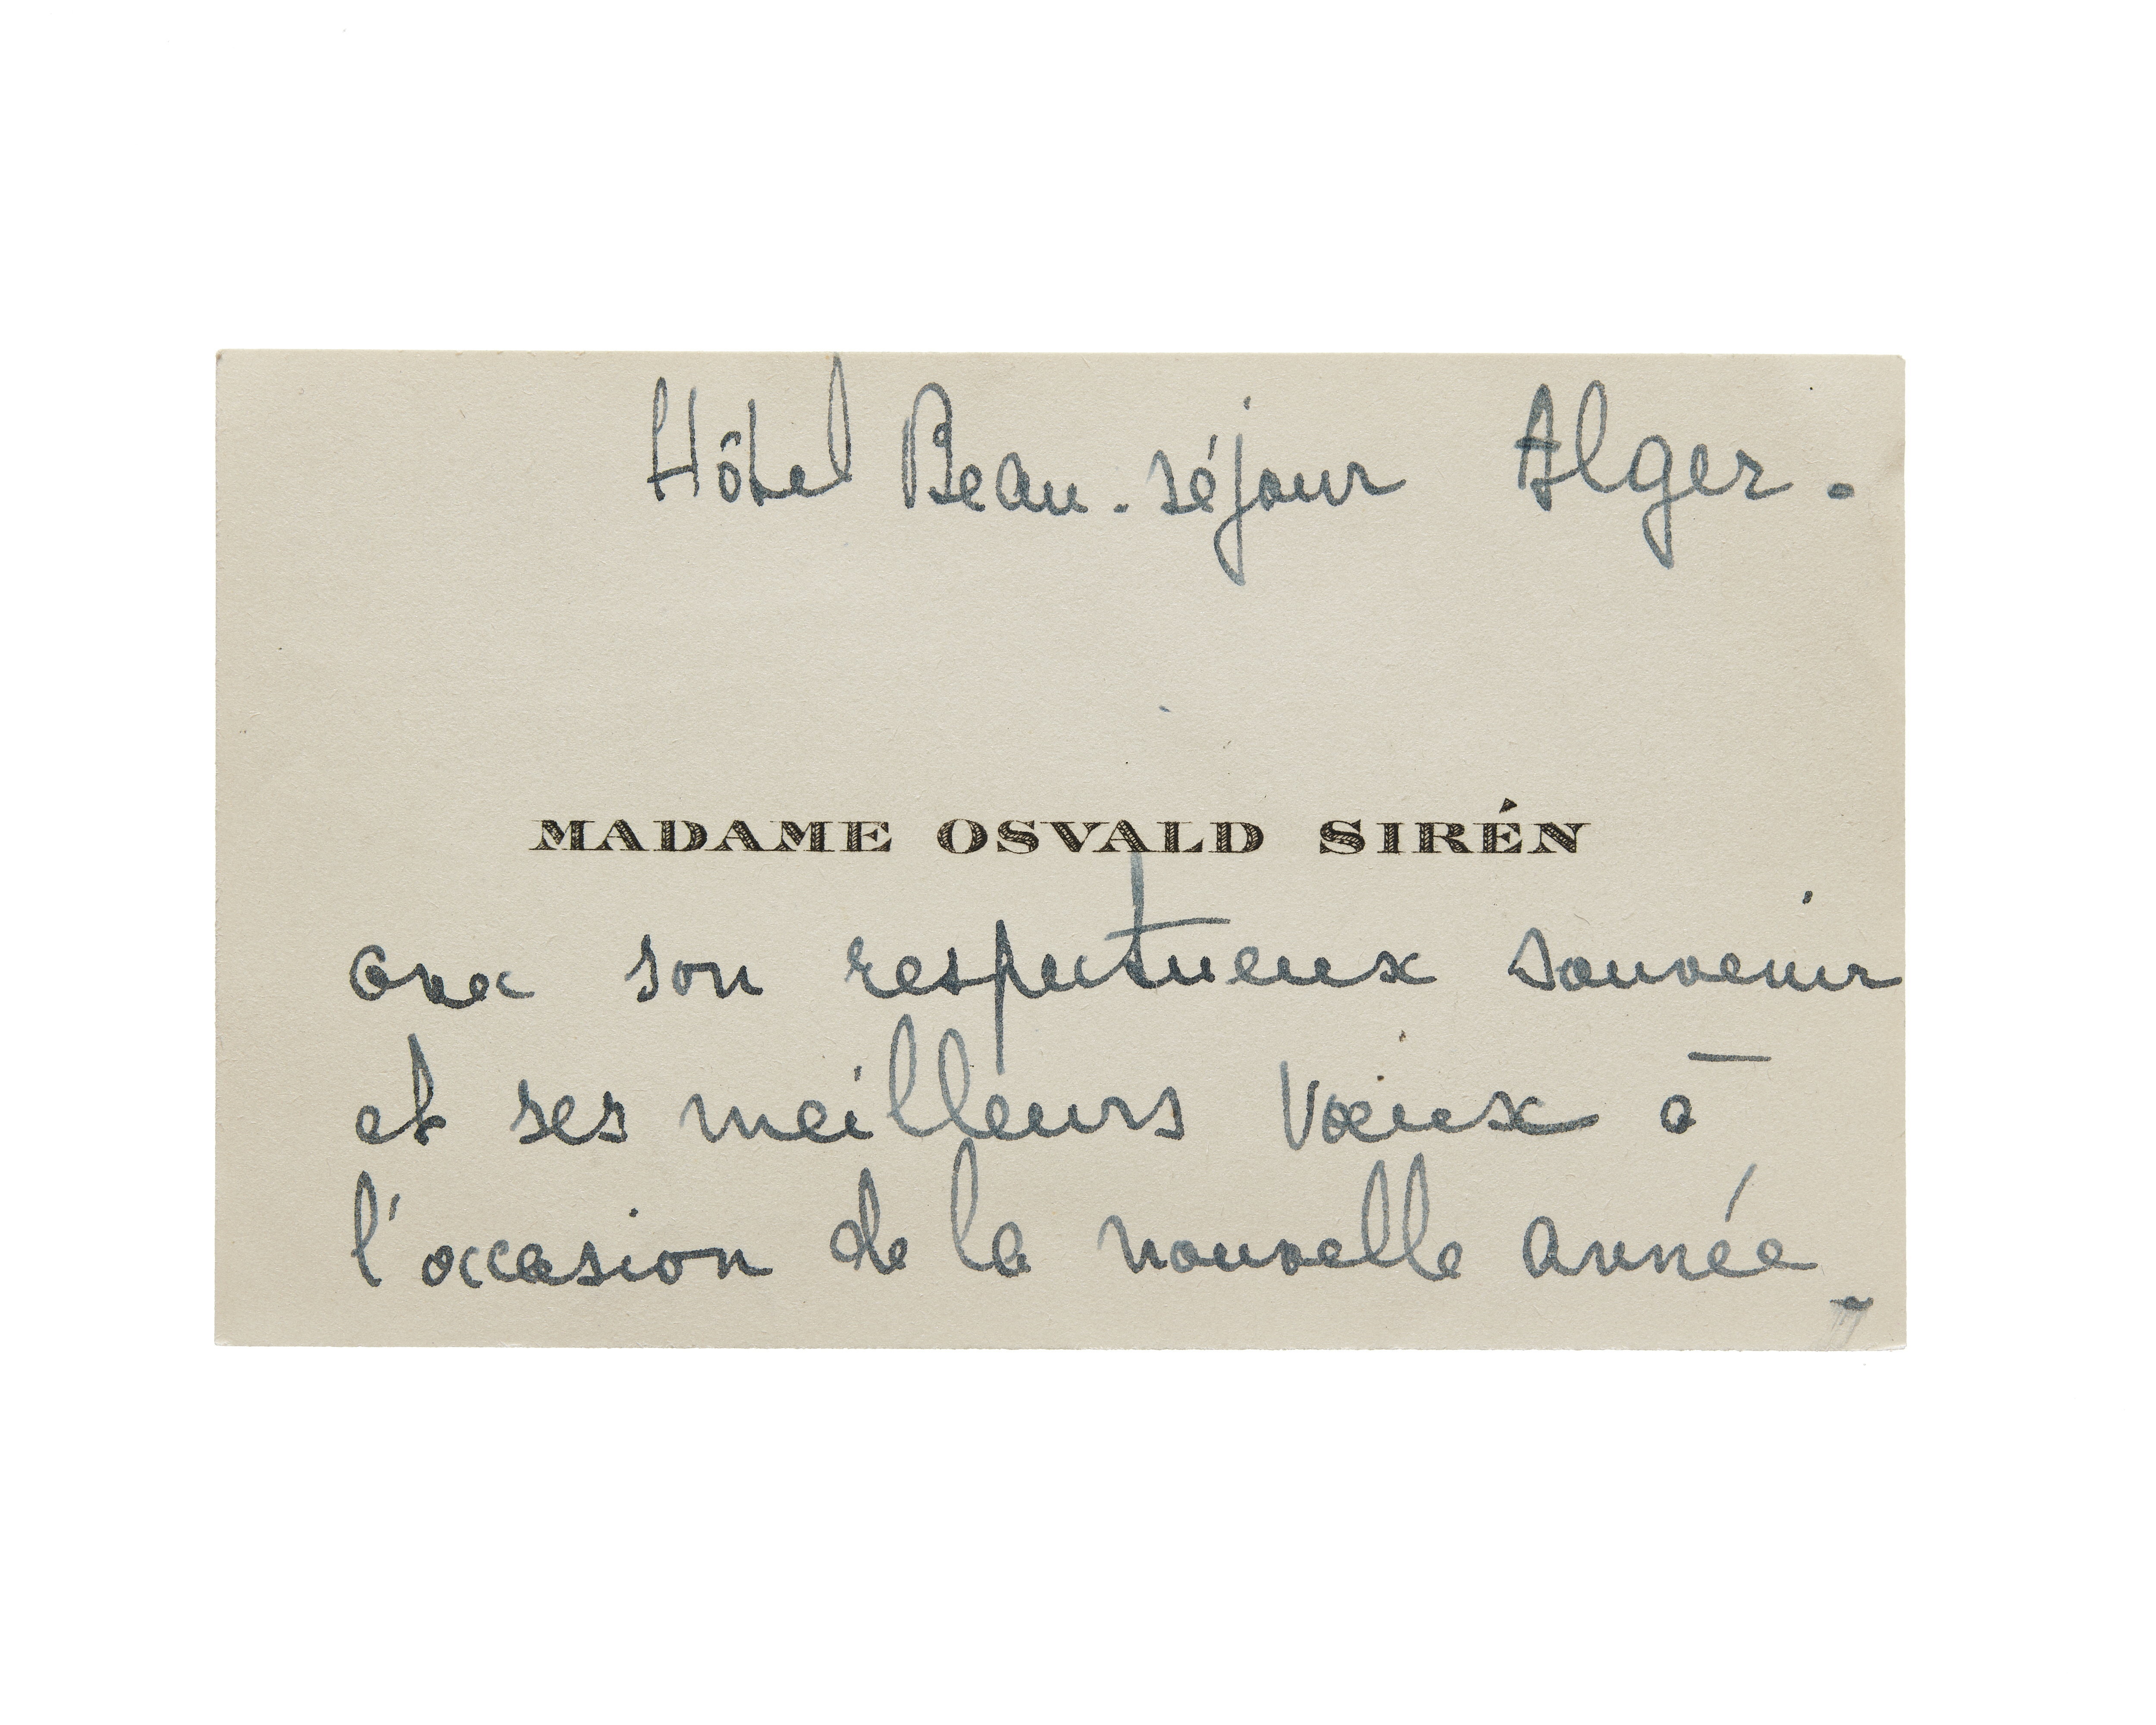 Hôtel Beau-séjour Alger-
MADAME OSVALD SIRÉN
avec son respectueux souvenir
et ses meilleurs vœux à
l'occasion de la nouvelle année